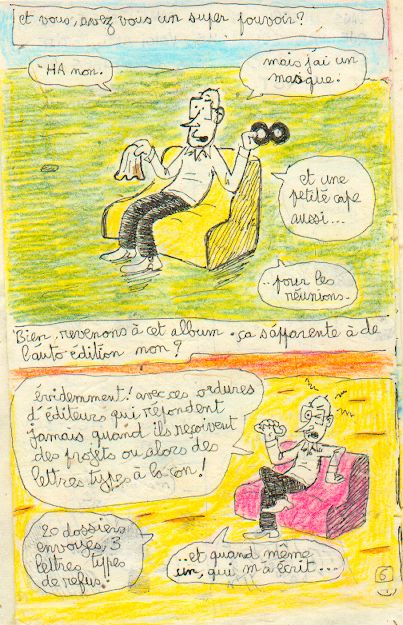 et vous, avez vous un super pouvoir?
-HA non.
mais j'ai un
masque.
et une
petite cape
aussi...
..pour les
réunions.
Bien, revenons à cet album. ça s'apparente à de
l'auto édition non?
évidemment! avec ces ordures
d'éditeurs qui répondent
jamais quand ils reçoivent
des projets ou alors des
lettres types à la con!
20 dossiers
envoyés, 3
lettres types
de refus!
..et quand même
un, qui m'a écrit...
6